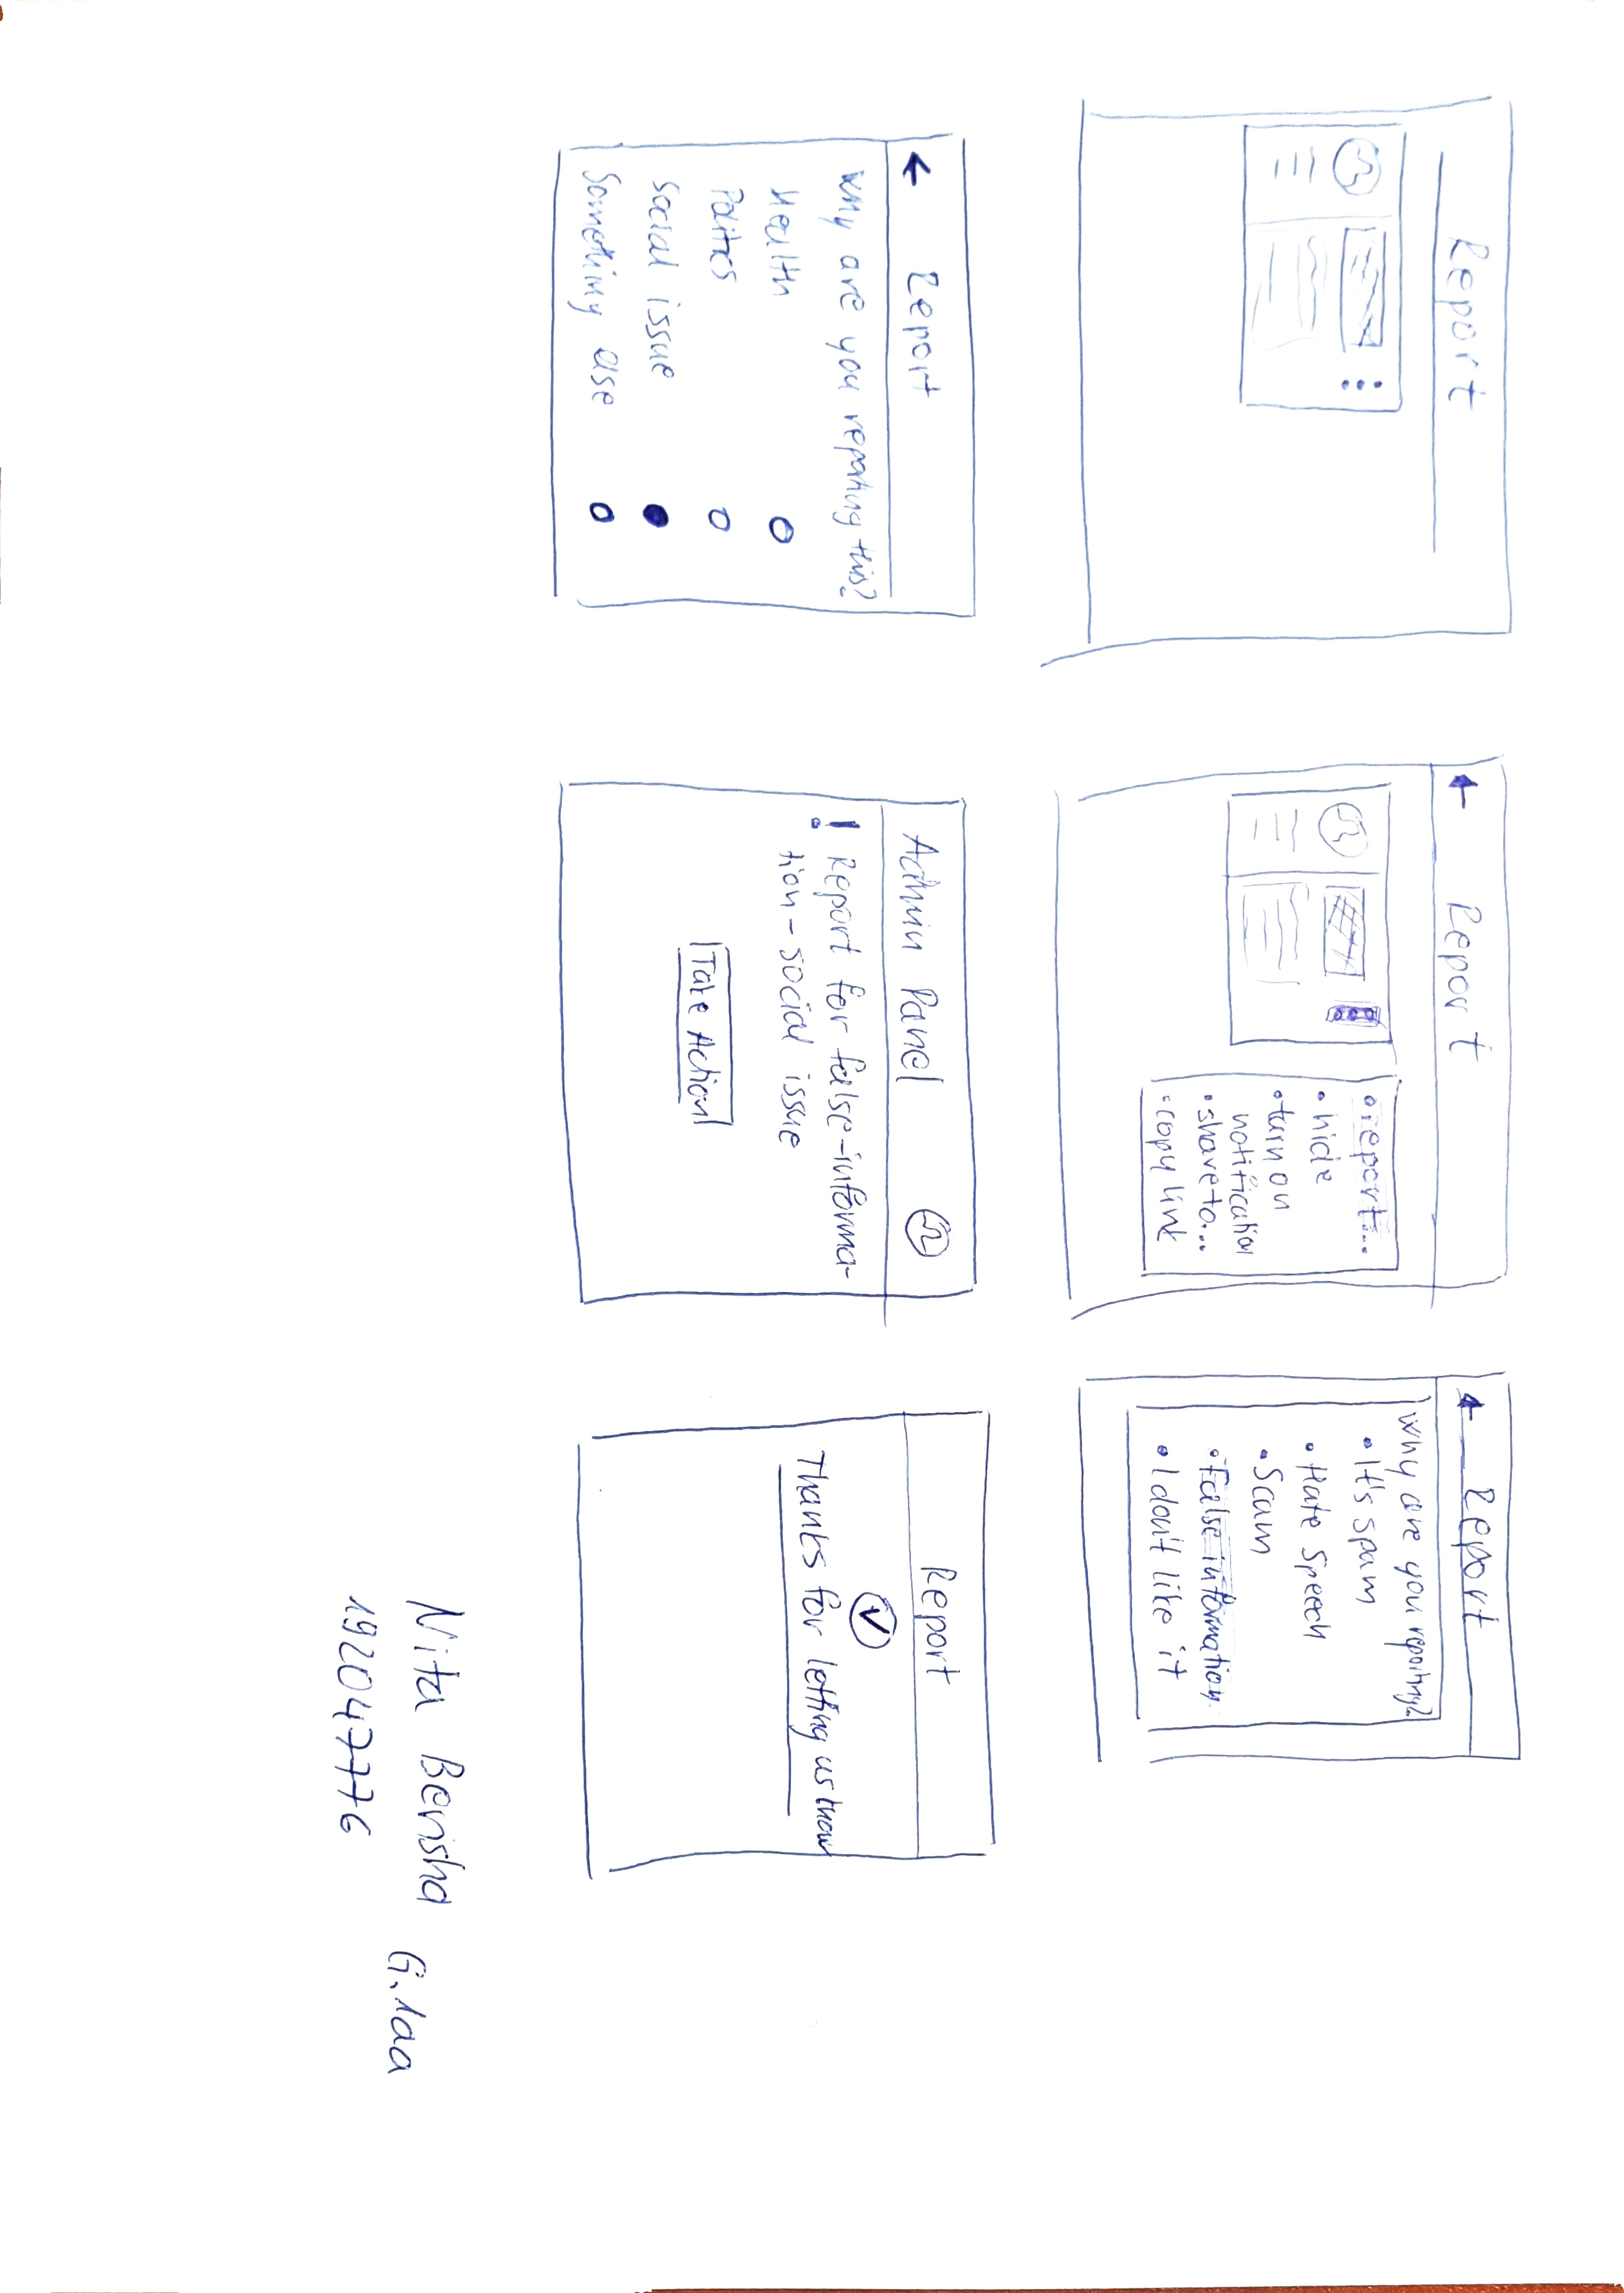 Report
← Report
• report...
• hide
• turn on
notification
• share to...
• copy link
← Report
Why are you reporting?
• It's spam
• Hate Speech
• Scam
• False information
• I don't like it
← Report
Why are you reporting this?
Health
Politics
Social issue
Something else
Admin Panel
! Report for false-informa-
tion - social issue
Take Action
Report
Thanks for letting us know
Nita Berisha G.1aa
192047776